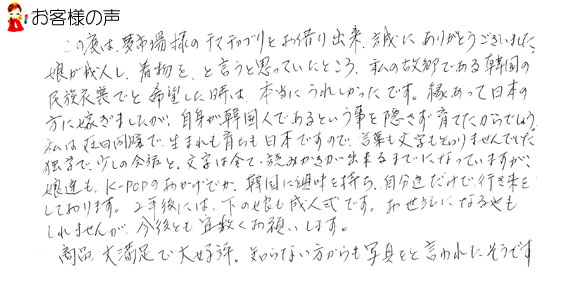 お客様の声
この度は、夢市場様のチマチョゴリをお借り出来、誠にありがとうございました。
娘が成人し、着物を、と言うと思っていたところ、私の故郷である韓国の
民族衣装でと希望した時は、本当にうれしかったです。縁あって日本の
方に嫁ぎましたが、自身が韓国人であるという事を隠さず育てたからでしょう。
私は在日同胞で、生まれも育ちも日本ですので、言葉も文字もとりませんでした。
独学で、少しの会話と、文字は全て読みかきが出来るまでになっていますが、
娘達も、K-POPのおかげでか、韓国に興味を持ち、自分達だけで行き来を
しております。2年後には、下の娘も成人式です。お世話になるやも
しれませんが、今後とも宜敷くお願いします。
商品、大満足で大好評。知らない方からも写真をと言われたそうです